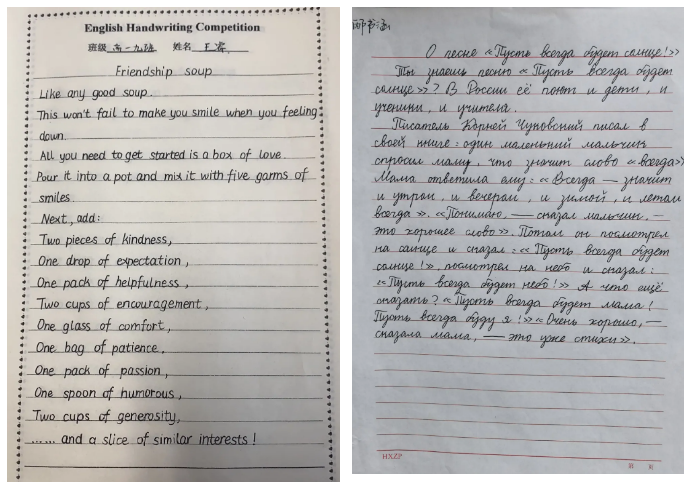 English Handwriting Competition
班级 高一九班 姓名 王
Friendship soup
Like any good soup.
This won't fail to make you smile when you feeling
down.
All you need to get started is a box of love.
Pour it into a pot and mix it with five garms of
smiles.
Next, add:
Two pieces of kindness,
One drop of expectation,
One pack of helpfulness,
Two cups of encouragement,
One glass of comfort,
One bag of patience,
One pack of passion,
One spoon of humorous,
Two cups of generosity,
...... and a slice of similar interests!
О песне «Пусть всегда будет солнце!»
Ты знаешь песню «Пусть всегда будет
солнце»? В России её поют и дети, и
ученики, и учителя.
Писатель Корней Чуковский писал в
своей книге: один маленький мальчик
спросил маму, что значит слово «всегда»
Мама ответила ему: «Всегда — значит
и утром, и вечером, и зимой, и летом
всегда». «Понимаю, — сказал мальчик, —
это хорошее слово». Потом он посмотрел
на солнце и сказал: «Пусть всегда будет
солнце!», посмотрел на небо и сказал:
«Пусть всегда будет небо!» А что ещё
сказать? «Пусть всегда будет мама!
Пусть всегда буду я!» «Очень хорошо, —
сказала мама, — это уже стихи».
HXZP
页 页